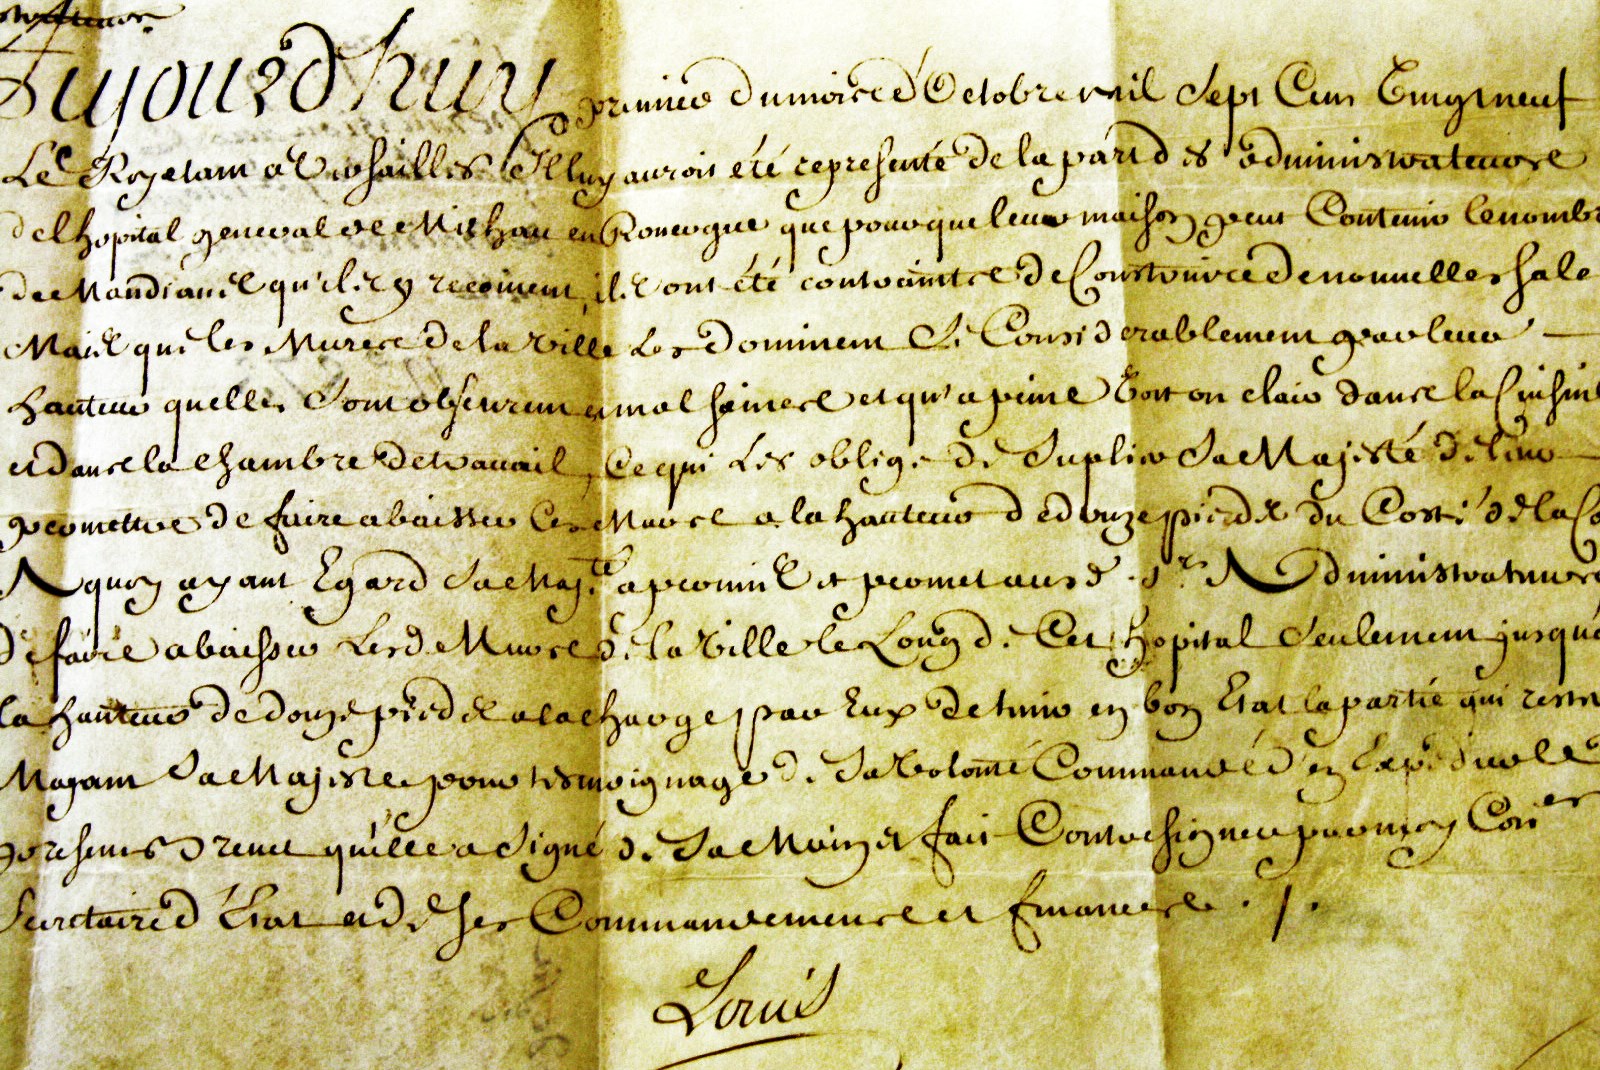 Aujourd'huy premier du mois d'Octobre mil Sept Cens Vingt neuf
Le Roy etant a Versailles Il luy auroit été representé de la part des administrateurs
de l'hopital general de Milhau en Rouergue que pour que leur maison peut Contenir le nombre
de Mandians qu'ils y recoivent, ils ont été contraints de Construire de nouvelles Sale
Mais que les Murs de la Ville Les dominent Si Considerablement par leur
hauteur quelles Sont obscures et mal saines et qu'a peine Voit on clair dans la Cuisine
et dans la chambre de travail, Ce qui Les oblige de Suplier Sa Majesté de leur
permettre de faire abaisser Ces Murs a la hauteur de douze pieds du Costé de la
A quoy ayant Egard Sa Maj.té a permis et permet aus d. S.rs Administrateurs
De faire abaisser Les d. Murs de la Ville le Long de Cet hopital Seulement jusques
la hauteur de douze pieds a la charge par Eux de tenir en bon Etat la partie qui reste
Mayant Sa Majeste pour tesmoignage de Sa Volonté Commandé d'en Expedier le
present Brevet qu'elle a Signé de Sa Main et fait Contresigner par moy Con.er
Secretaire d'Etat et de ses Commandemens et finances ./.
Louis